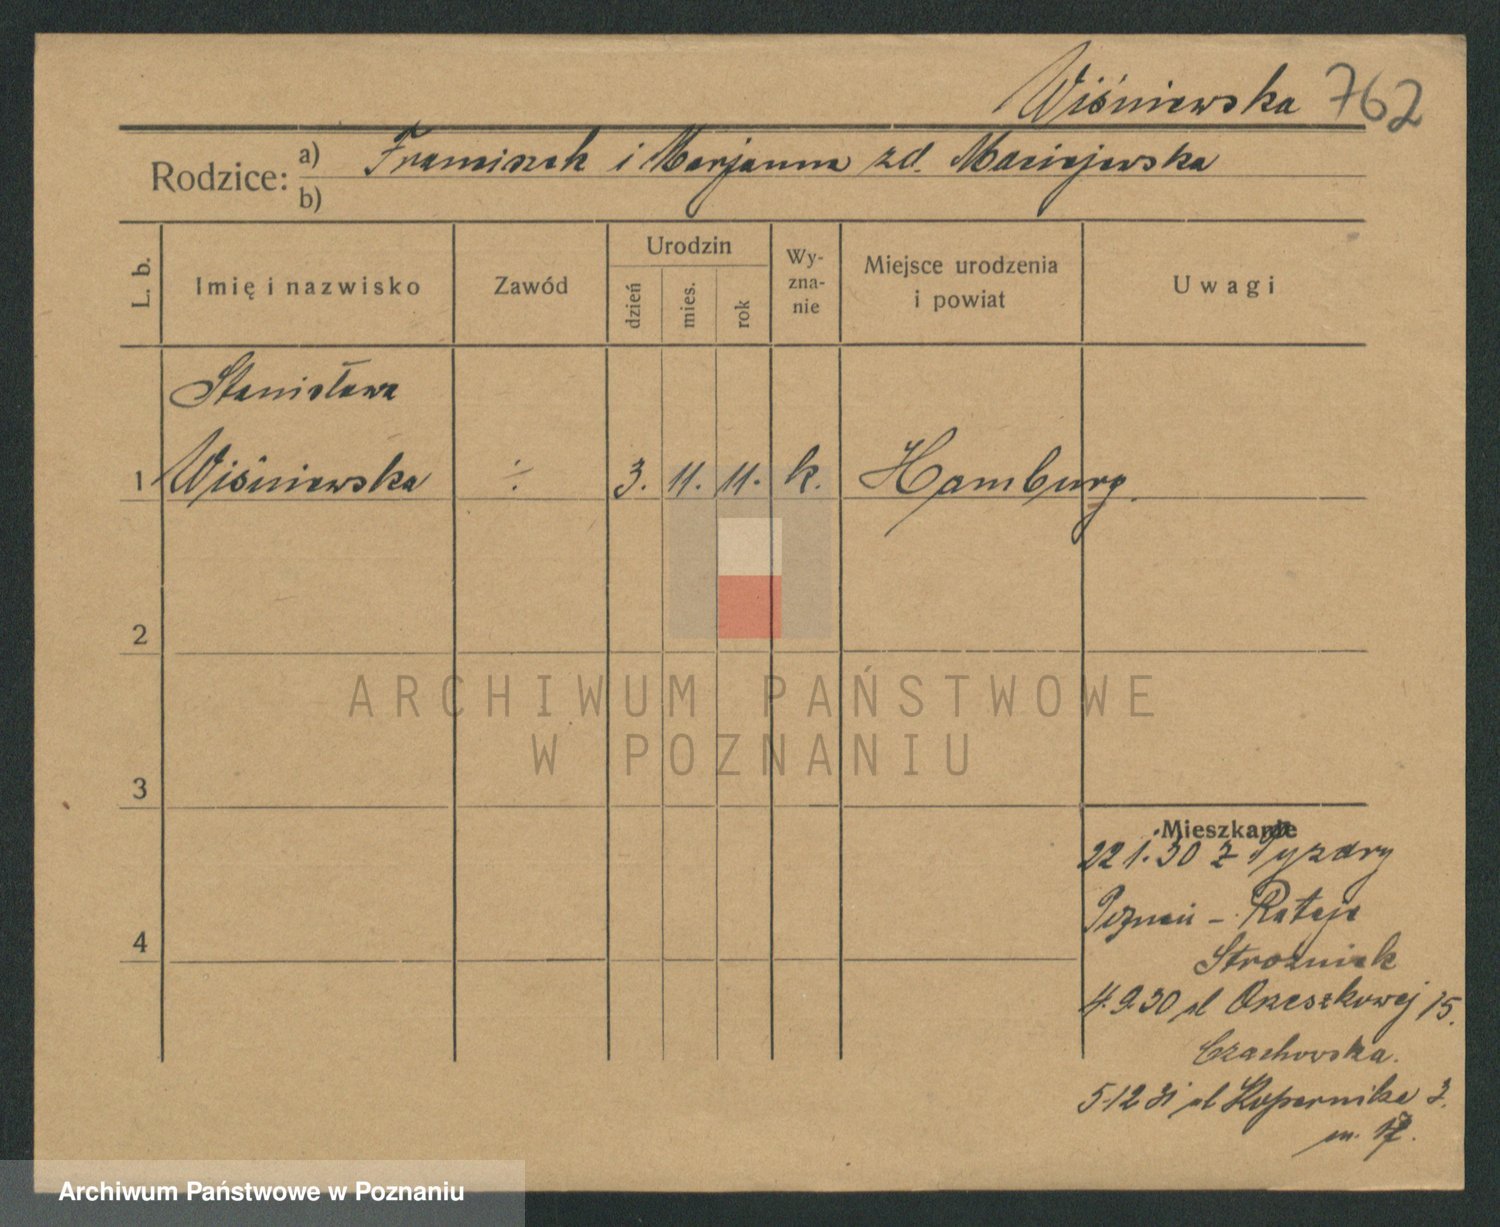 Wiśniewska 762
Rodzice: a) Franciszek i Marjanna zd. Maciejewska
b)
L. b.
Imię i nazwisko
Zawód
Urodzin
dzień
mies.
rok
Wy-
zna-
nie
Miejsce urodzenia
i powiat
Uwagi
Stanisława
1 Wiśniewska ÷ 3. 11. 11. k. Hamburg.
2
ARCHIWUM PAŃSTWOWE
W POZNANIU
3
Mieszkanie
22 1. 30 z Pyzdry
Poznań - Rataje
Strozniak
4
4.9.30 ul Orzeszkowej 15.
Czachowska.
5-12 31 ul Kopernika 3.
m. 17.
Archiwum Państwowe w Poznaniu